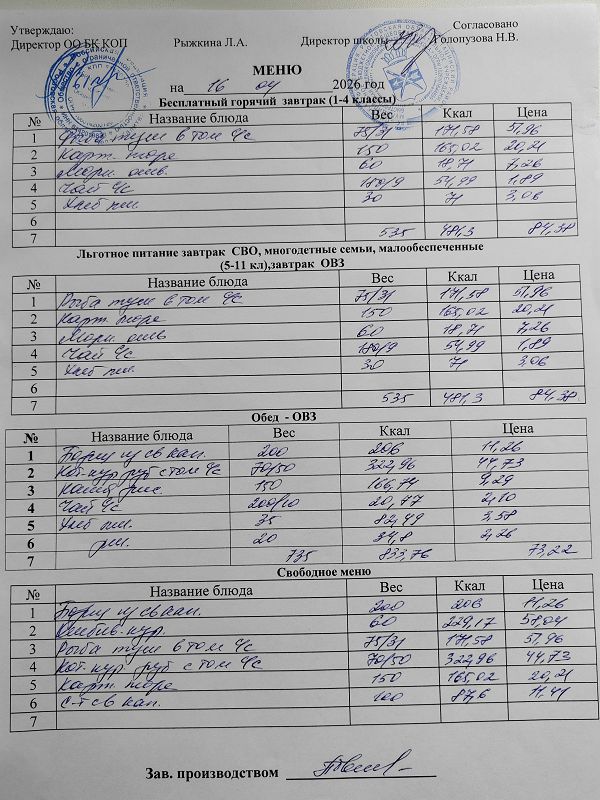 Утверждаю:
Согласовано
Директор ОО БК КОП Рыжкина Л.А. Директор школы Голопузова Н.В.
МЕНЮ
на 16 04 2026 год
Бесплатный горячий завтрак (1-4 классы)
№ Название блюда Вес Ккал Цена
1 Рыба туш в том ч/с 75/31 171,58 51,96
2 Карт. пюре 150 165,02 20,21
3 60 18,71 7,26
4 Чай ч/с 180/9 54,99 1,89
5 Хлеб пш. 30 71 3,06
6
7 535 481,3 84,38
Льготное питание завтрак СВО, многодетные семьи, малообеспеченные
(5-11 кл),завтрак ОВЗ
№ Название блюда Вес Ккал Цена
1 Рыба туш в том ч/с 75/31 171,58 51,96
2 Карт. пюре 150 165,02 20,21
3 60 18,71 7,26
4 Чай ч/с 180/9 54,99 1,89
5 Хлеб пш. 30 71 3,06
6
7 535 481,3 84,38
Обед - ОВЗ
№ Название блюда Вес Ккал Цена
1 Борщ из св кап. 200 206 11,26
2 Кот. кур. руб с том ч/с 70/50 322,96 44,73
3 150 166,74 9,29
4 Чай ч/с 200/10 20,77 2,10
5 Хлеб пш. 35 82,49 3,58
6 рж. 20 34,8 2,26
7 735 833,76 73,22
Свободное меню
№ Название блюда Вес Ккал Цена
1 Борщ из св кап. 200 206 11,26
2 кур. 60 229,17 58,04
3 Рыба туш в том ч/с 75/31 171,58 51,96
4 Кот. кур. руб с том ч/с 70/50 322,96 44,73
5 Карт. пюре 150 165,02 20,21
6 С-т св кап. 100 87,6 11,41
7
Зав. производством